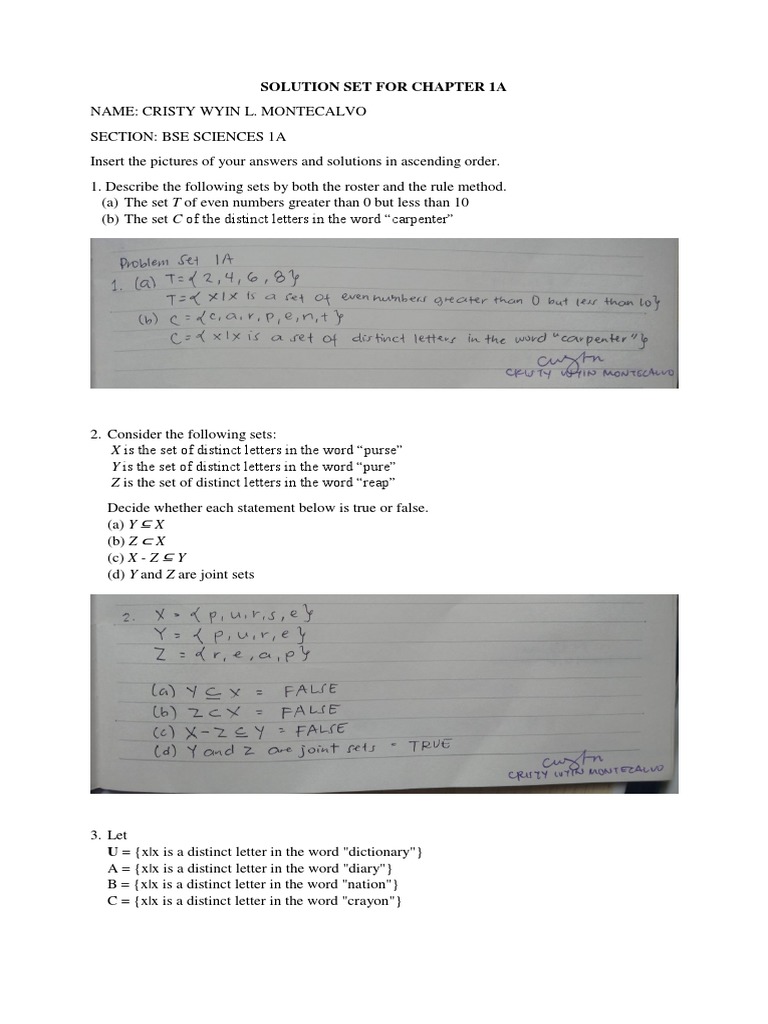 SOLUTION SET FOR CHAPTER 1A
NAME: CRISTY WYIN L. MONTECALVO
SECTION: BSE SCIENCES 1A
Insert the pictures of your answers and solutions in ascending order.
1. Describe the following sets by both the roster and the rule method.
(a) The set T of even numbers greater than 0 but less than 10
(b) The set C of the distinct letters in the word “carpenter”
Problem Set 1A
1. (a) T={2,4,6,8}
T={x|x is a set of even numbers greater than 0 but less than 10}
(b) C={c,a,r,p,e,n,t}
C={x|x is a set of distinct letters in the word "carpenter"}
CRISTY WYIN MONTECALVO
2. Consider the following sets:
X is the set of distinct letters in the word “purse”
Y is the set of distinct letters in the word “pure”
Z is the set of distinct letters in the word “reap”
Decide whether each statement below is true or false.
(a) Y ⊆ X
(b) Z ⊂ X
(c) X - Z ⊆ Y
(d) Y and Z are joint sets
2. X = {p,u,r,s,e}
Y = {p,u,r,e}
Z = {r,e,a,p}
(a) Y ⊆ X = FALSE
(b) Z ⊂ X = FALSE
(c) X-Z ⊆ Y = FALSE
(d) Y and Z are joint sets = TRUE
CRISTY WYIN MONTECALVO
3. Let
U = {x|x is a distinct letter in the word "dictionary"}
A = {x|x is a distinct letter in the word "diary"}
B = {x|x is a distinct letter in the word "nation"}
C = {x|x is a distinct letter in the word "crayon"}